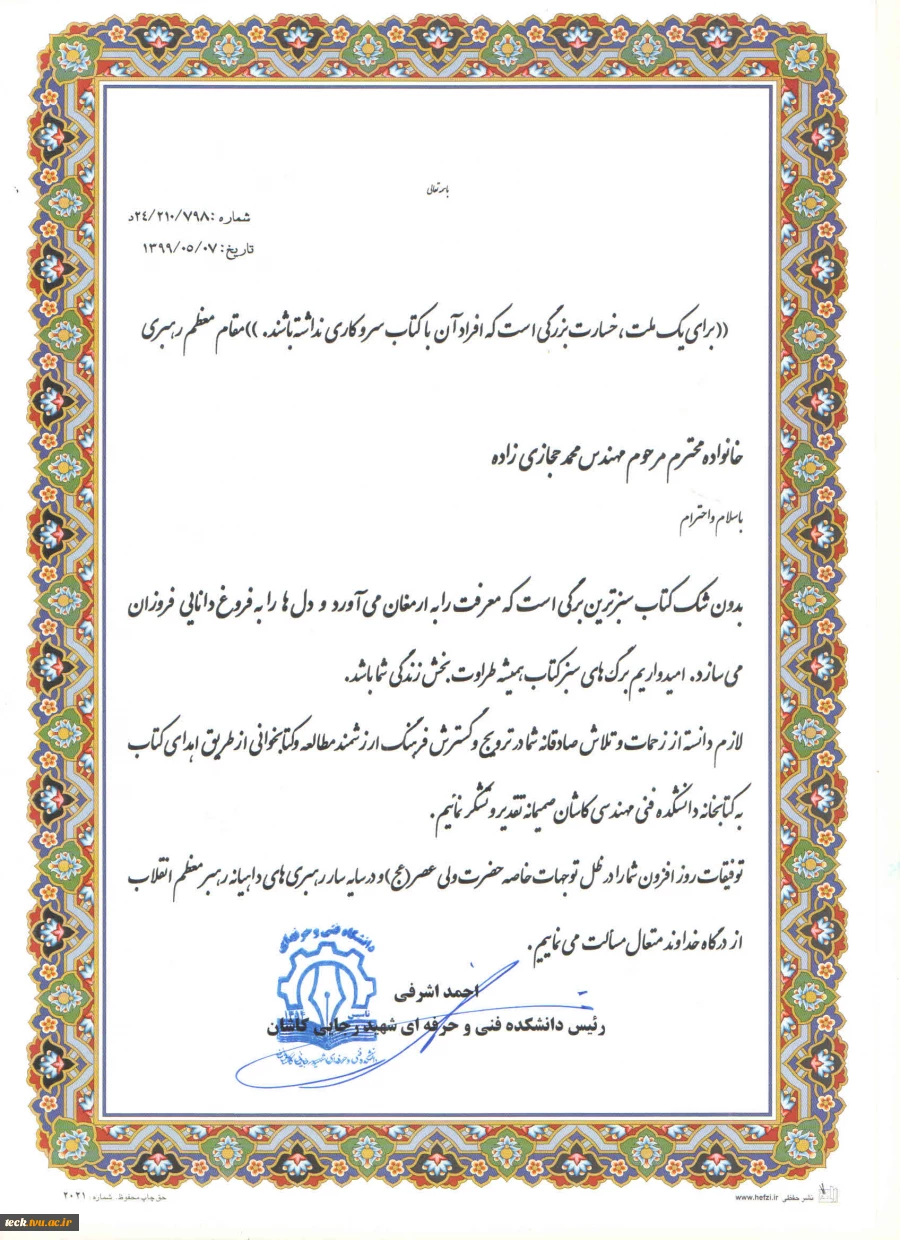 باسمه تعالی
شماره :۲۴/۲۱۰/۷۹۸د
تاریخ: ۱۳۹۹/۰۵/۰۷
((برای یک ملت، خسارت بزرگی است که افراد آن با کتاب سر و کاری نداشته باشند. ))مقام معظم رهبری
خانواده محترم مرحوم مهندس محمد حجازی زاده
باسلام و احترام
بدون شک کتاب سبزترین برگی است که معرفت را به ارمغان می آورد و دل ها را به فروغ دانایی فروزان
می سازد. امیدواریم برگ های سبز کتاب همیشه طراوت بخش زندگی شما باشد.
لازم دانسته از زحمات و تلاش صادقانه شما در ترویج و گسترش فرهنگ ارزشمند مطالعه و کتابخوانی از طریق اهدای کتاب
به کتابخانه دانشکده فنی مهندسی کاشان صمیمانه تقدیر و تشکر نمائیم.
توفیقات روز افزون شما را در ظل توجهات خاصه حضرت ولی عصر(عج)و در سایه سار رهبری های داهیانه رهبر معظم انقلاب
از درگاه خداوند متعال مسالت می نماییم.
دانشگاه فنی و حرفه‌ای
احمد اشرفی
تاسیس
رئیس دانشکده فنی و حرفه ای شهید رجایی کاشان
حق چاپ محفوظ. شماره : ۲۰۲۱
نشر حفظی www.hefzi.ir
teck.tvu.ac.ir